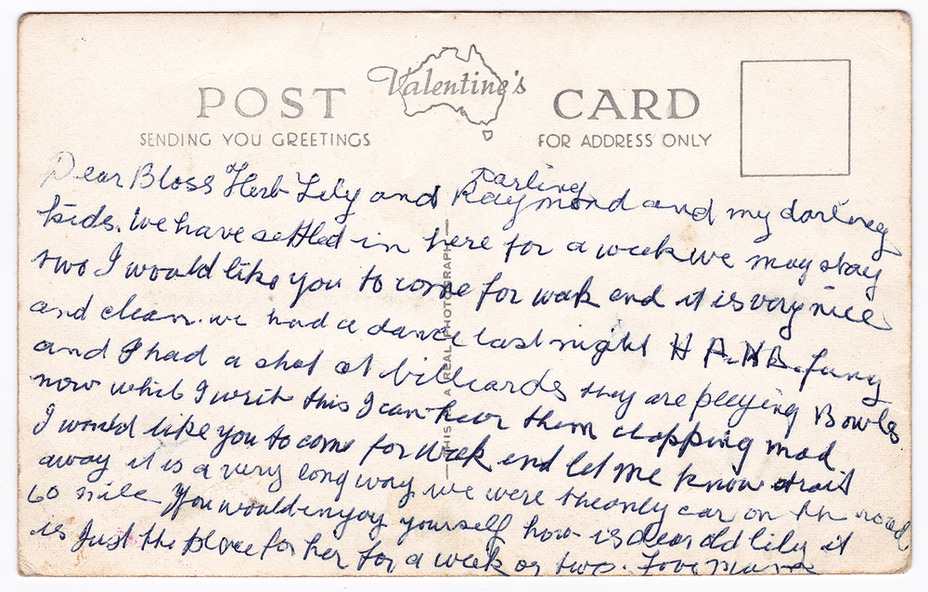 POST Valentine's CARD
SENDING YOU GREETINGS FOR ADDRESS ONLY
THIS IS A REAL PHOTOGRAPH
Dear Bloss Herb Lily and Darling Raymond and my darling
kids. We have settled in here for a week we may stay
two I would like you to come for wek end it is very nice
and clean. we had a dance last night H A. N B. funy
and I had a shot at billiards they are pleying Bowles
now whil I writ this I can hear them clapping mad
I would like you to come for week end let me know strait
away it is a very long way we were the only car on th road
60 mile You would injoy yourself how is dear old lily it
is Just the Place for her for a week or two. Love